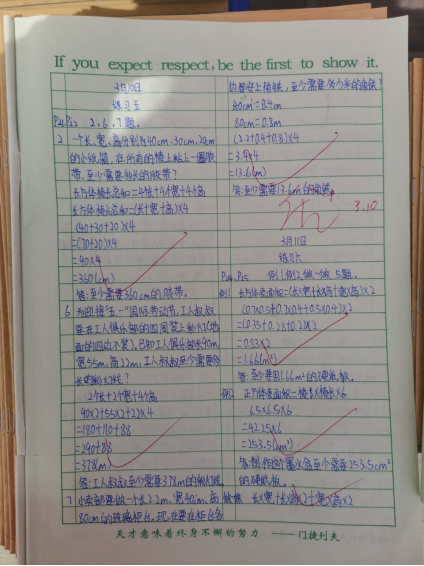 If you expect respect, be the first to show it.
3月10日
练习五
P21,P22 2、6、7题.
2 一个长、宽、高分别为40cm、30cm、20cm
的小纸箱,在所有的棱上粘上一圈胶
带,至少需要多长的胶带?
长方体棱长总和=4个长+4个宽+4个高
长方体棱长总和=(长+宽+高)×4
(40+30+20)×4
=(70+20)×4
=90×4
=360(cm)
答:至少需要360cm的胶带。
6 为迎接"五一"国际劳动节,工人叔叔
要在工人俱乐部的四周装上彩灯(地
面的四边不装),已知工人俱乐部长90m,
宽55m,高22m,工人叔叔至少需要多
长的彩灯线?
2个长+2个宽+4个高
90×2+55×2+22×4
=180+110+88
=290+88
=378(m)
答:工人叔叔至少需要378m的彩灯线。
7 小卖部要做一个长2.2m、宽40cm、高
80cm的玻璃柜台,现在要在柜台各
边都安上角铁,至少需要多少米的角铁?
40cm=0.4m
80cm=0.8m
(2.2+0.4+0.8)×4
=3.4×4
=13.6(m)
答:至少需要13.6m的角铁。
3.10
3月11日
练习六
例1,例2,做一做、5题.
例1 长方体表面积=(长×宽+长×高+宽×高)×2
(0.7×0.5+0.7×0.4+0.5×0.4)×2
=(0.35+0.28+0.2)×2
=0.83×2
=1.66(m²)
答:至少要用1.66m²的硬纸板。
例2 正方体表面积=棱长×棱长×6
6.5×6.5×6
=42.25×6
=253.5(cm²)
答:制作这个墨水盒至少需要253.5cm²
的硬纸板。
做一做 长×宽+长×高×2+宽×高×2
天才意味着终身不懈的努力 ——门捷列夫